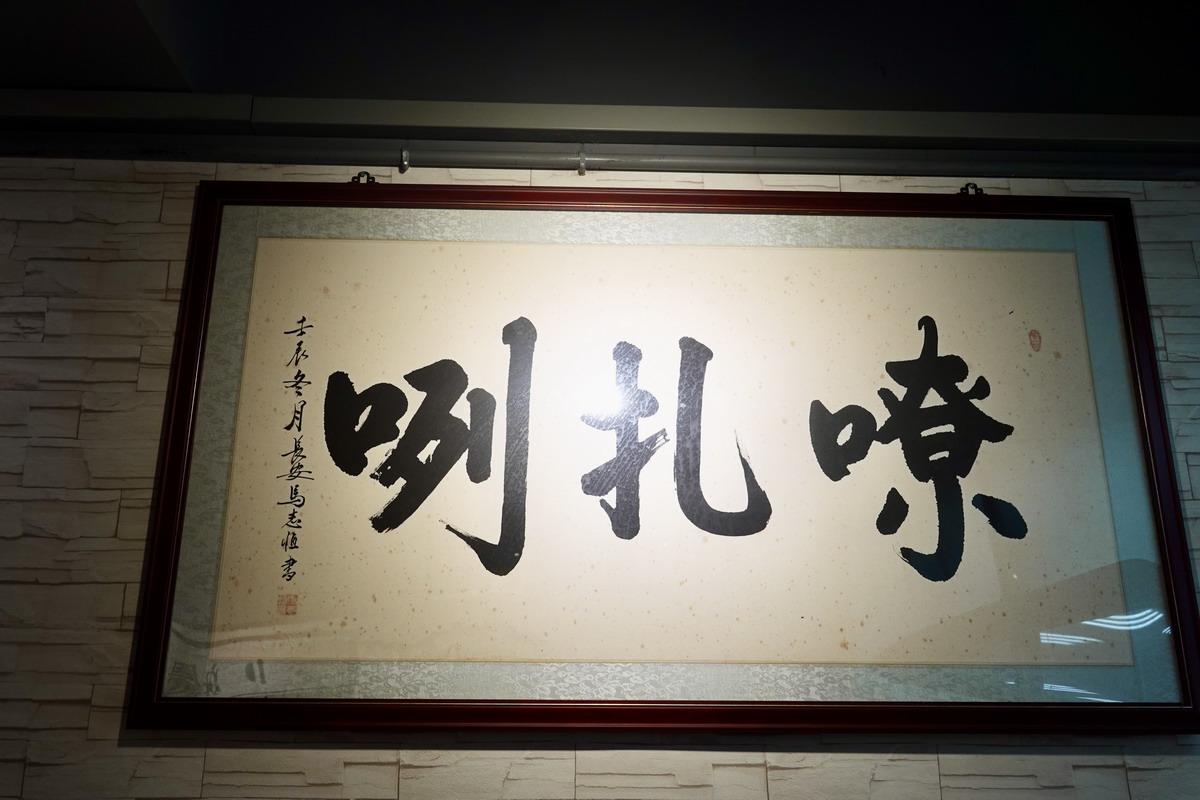 嘹扎咧
壬辰冬月長安馬志恒書